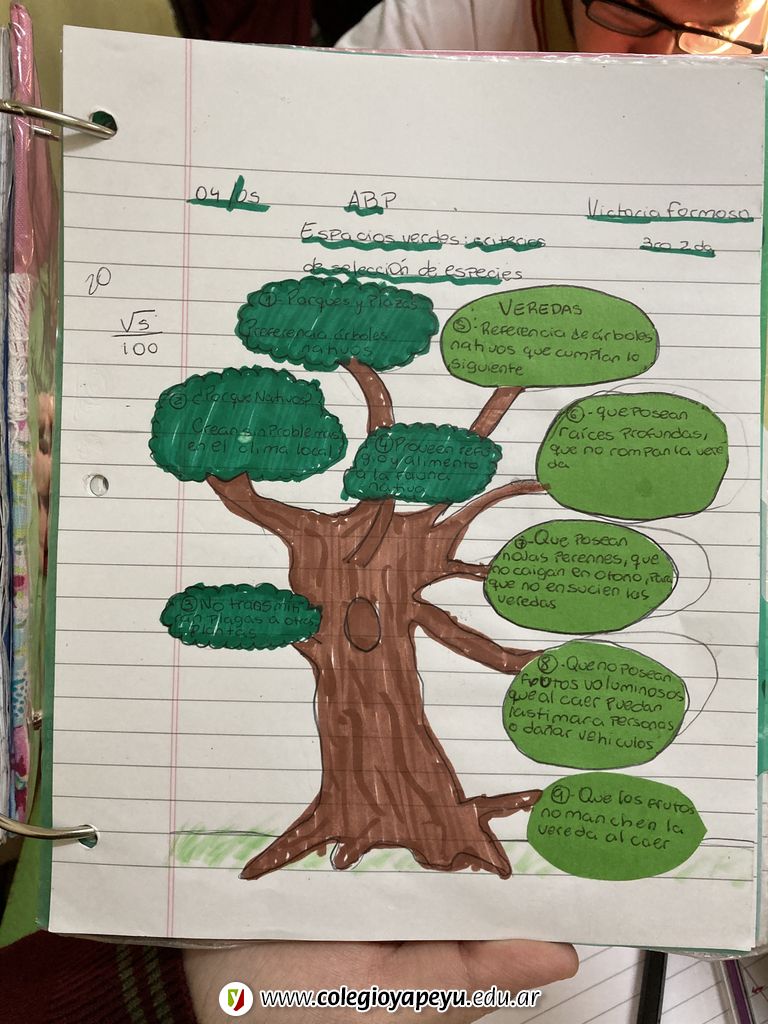 04/05
ABP
Victoria Formoso
Espacios verdes: criterios
3ro 2da
de selección de especies
20
√5
100
①- Parques y Plazas
Preferencia árboles
nativos
VEREDAS
⑤: Referencia de árboles
nativos que cumplan lo
siguiente
② ¿Porque Nativos?
Crean sin Problemas
en el clima local
④ Proveen refu
gio y alimento
a la fauna
nativa
⑥ - que Posean
raíces profundas,
que no rompan la vere
da
⑦- Que Posean
hojas Perennes, que
no caigan en otoño, Para
que no ensucien las
veredas
③ No transmiti
rán Plagas a otras
Plantas
⑧ - Que no posean
frutos voluminosos
que al caer puedan
lastimar a Personas
o dañar vehículos
⑨ - Que los frutos
no manchen la
vereda al caer
y www.colegioyapeyu.edu.ar